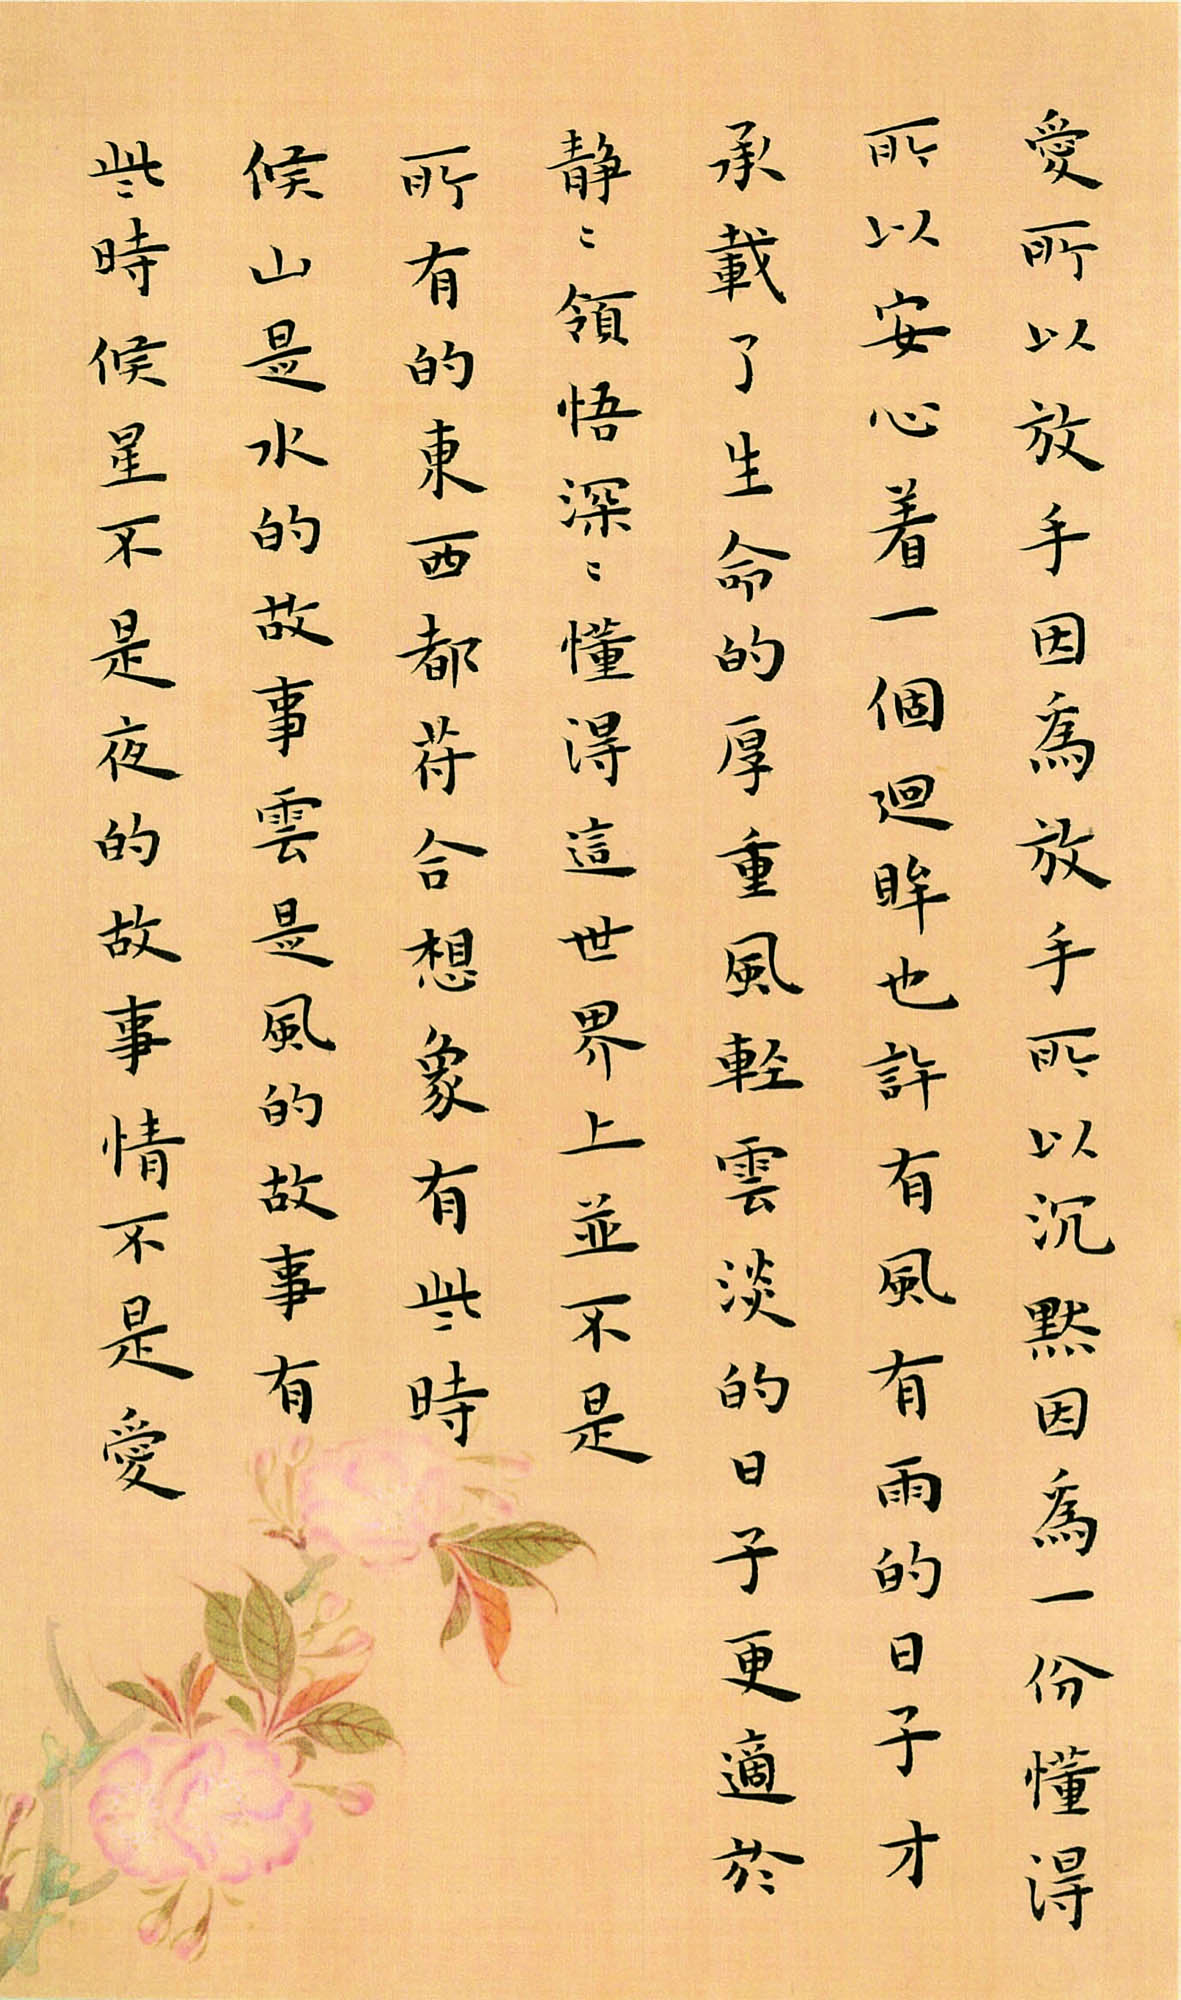 愛所以放手因為放手所以沉默因為一份懂得
所以安心着一個迴眸也許有風有雨的日子才
承載了生命的厚重風輕雲淡的日子更適於
靜〻領悟深〻懂得這世界上並不是
所有的東西都符合想象有些時
候山是水的故事雲是風的故事有
些時候星不是夜的故事情不是愛